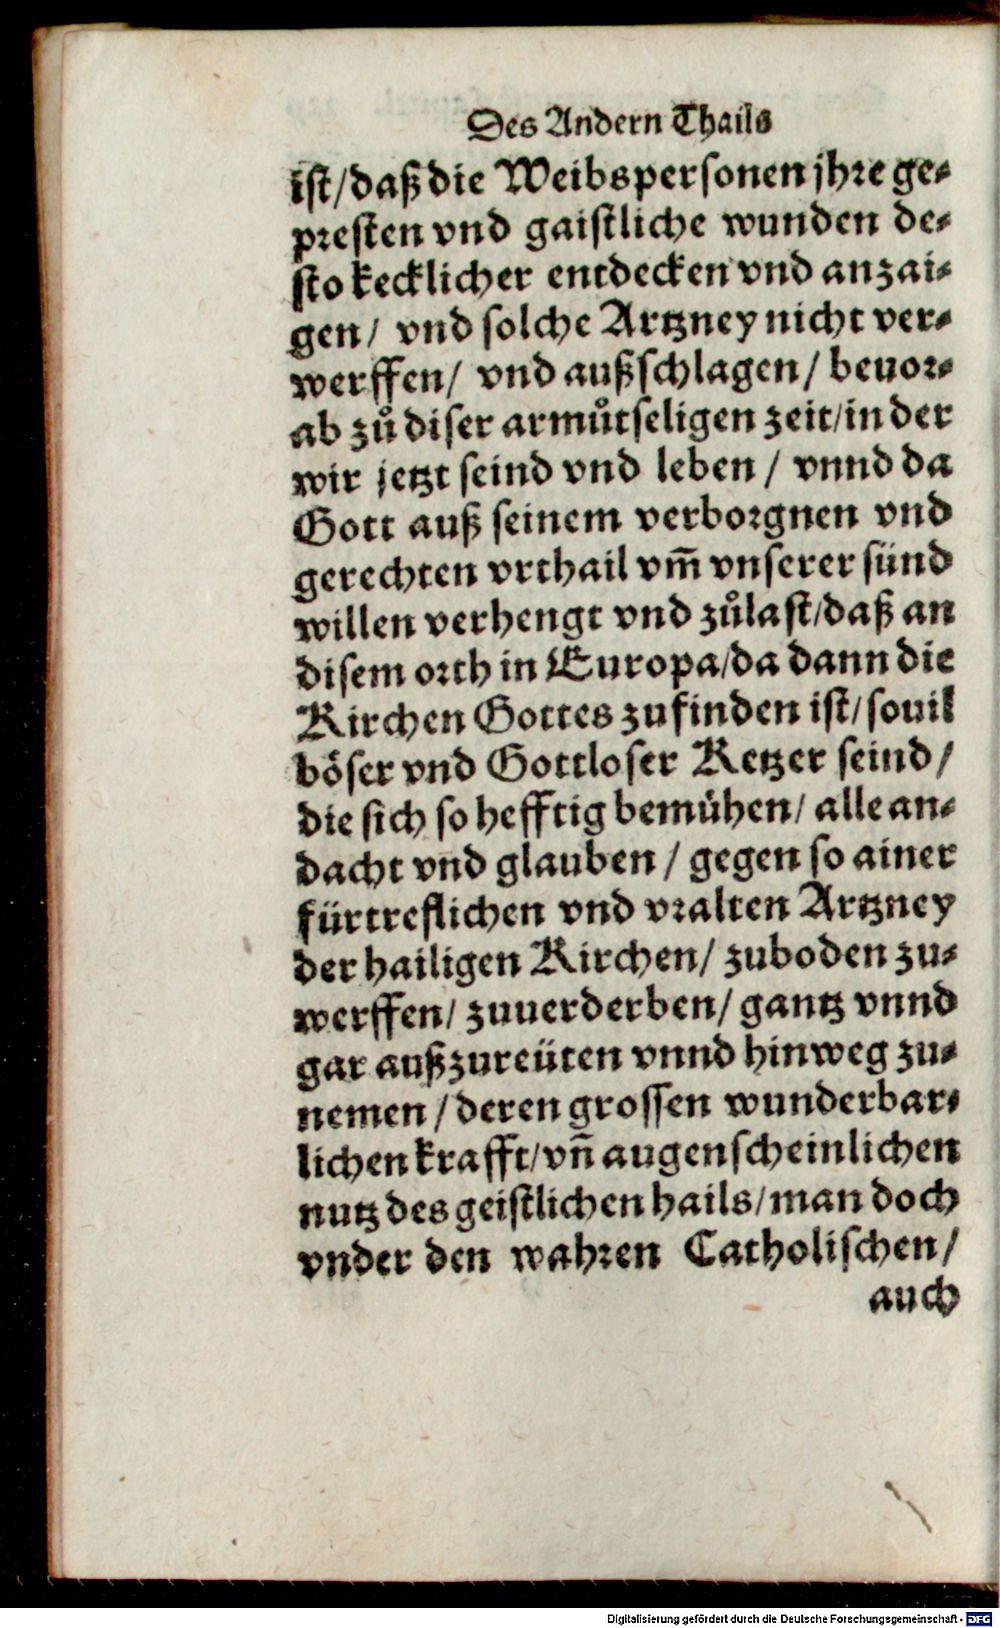 Des Andern Thails
ist/daß die Weibspersonen jhre ge⸗
presten vnd gaistliche wunden de⸗
sto kecklicher entdecken vnd anzai⸗
gen/ vnd solche Artzney nicht ver⸗
werffen/ vnd außschlagen/ beuor⸗
ab zů diser armůtseligen zeit/in der
wir jetzt seind vnd leben/ vnnd da
Gott auß seinem verborgnen vnd
gerechten vrthail vm̃ vnserer sünd
willen verhengt vnd zůlast/daß an
disem orth in Europa/da dann die
Kirchen Gottes zufinden ist/souil
böser vnd Gottloser Ketzer seind/
die sich so hefftig bemühen/ alle an⸗
dacht vnd glauben/ gegen so ainer
fürtreflichen vnd vralten Artzney
der hailigen Kirchen/ zuboden zu⸗
werffen/ zuuerderben/ gantz vnnd
gar außzureüten vnnd hinweg zu⸗
nemen/deren grossen wunderbar⸗
lichen krafft/vñ augenscheinlichen
nutz des geistlichen hails/man doch
vnder den wahren Catholischen/
auch
Digitalisierung gefördert durch die Deutsche Forschungsgemeinschaft - DFG